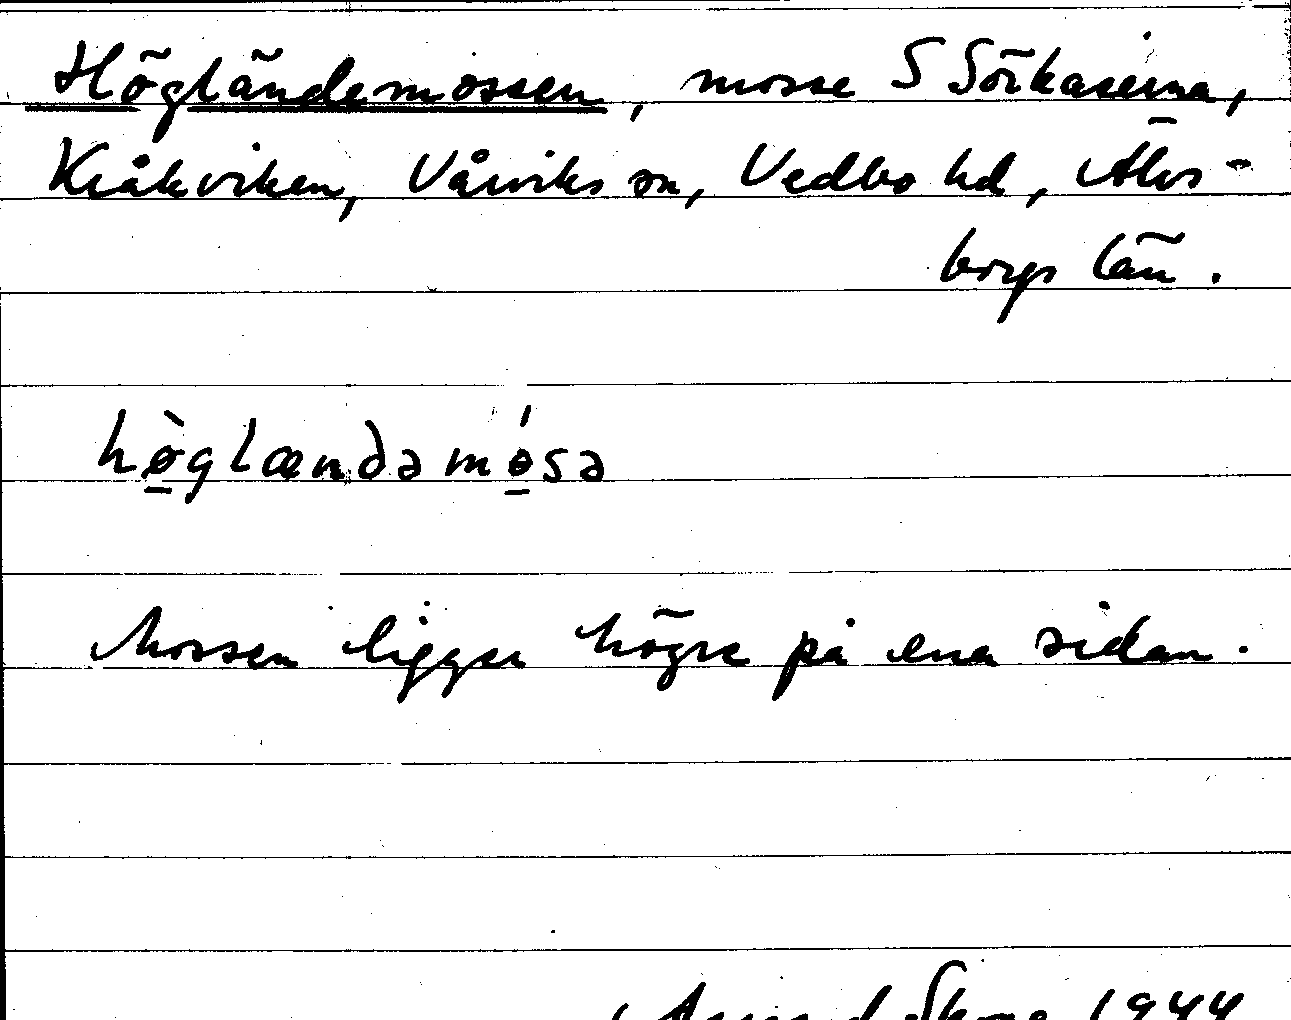 Högländemossen, mosse S Sörkaserna,
Kråkviken, Vårviks sn, Vedbo hd, Älvs-
borgs län.
hø̱̀glændəmǿ̱sə
Mossen ligger högre på ena sidan.
1944